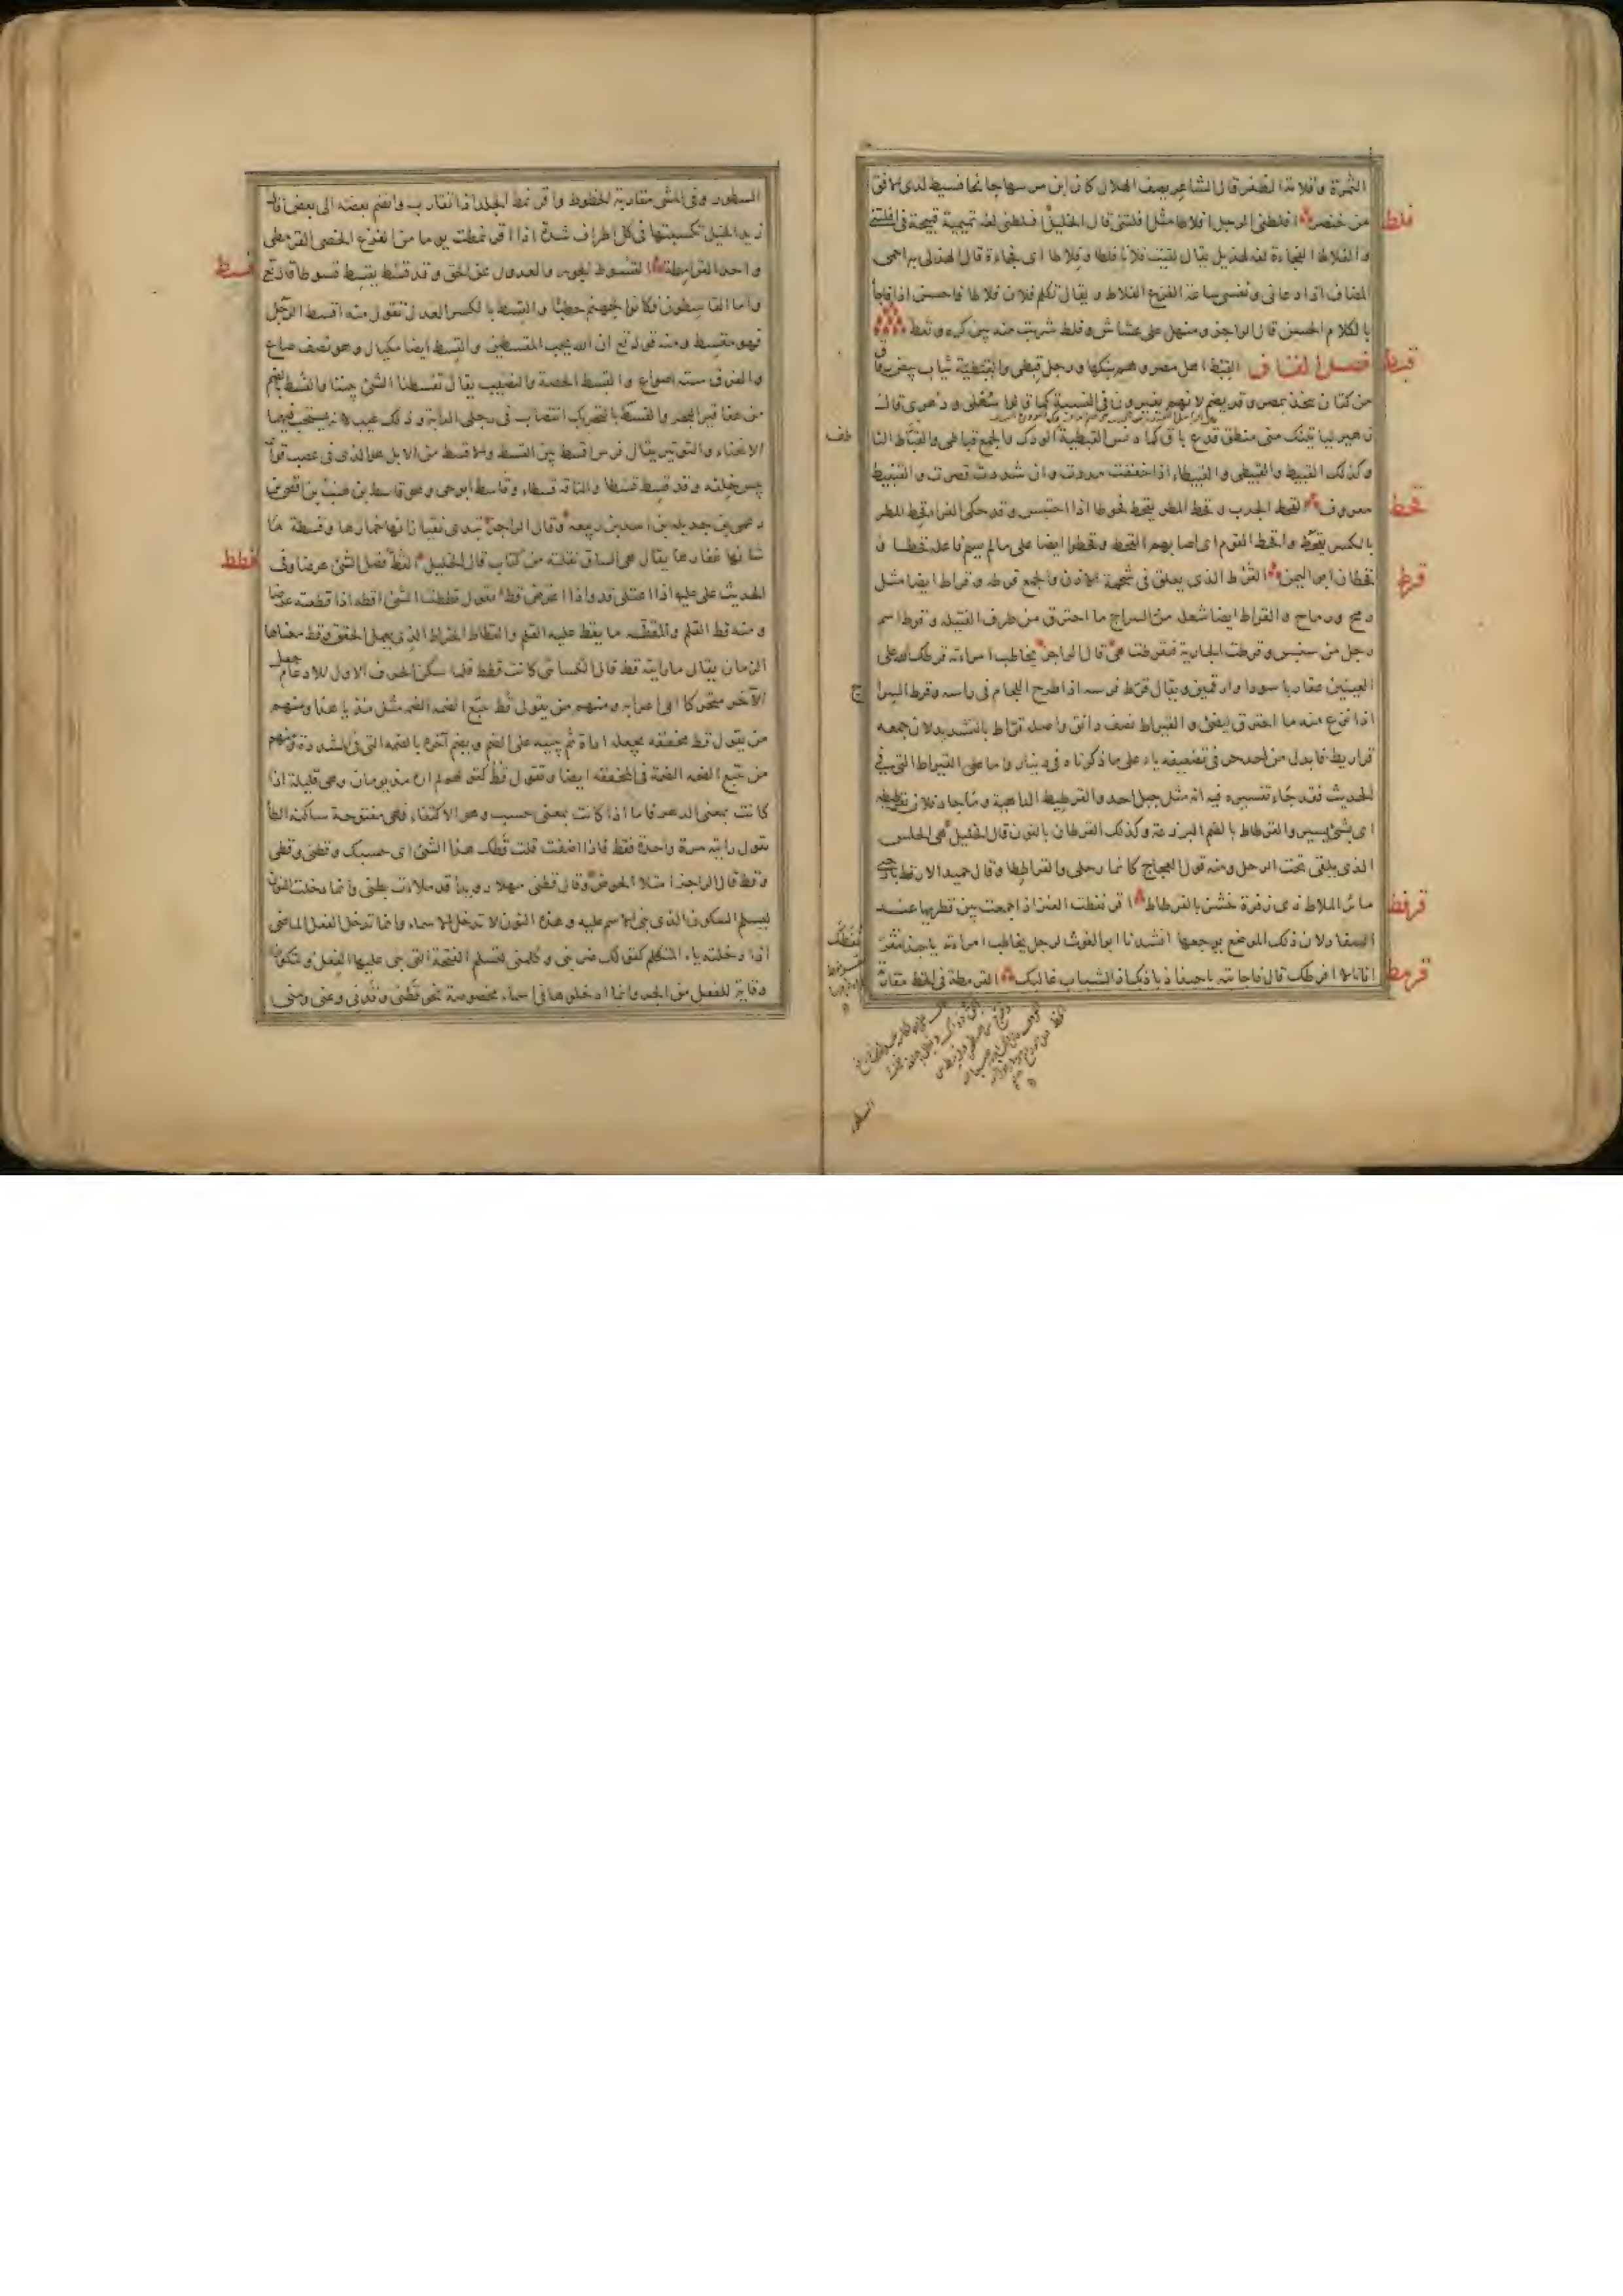 الثمرة وقلامة الظفر قال الشاعر يصف الهلال كان ابن مزنتها جانحا فسيط لدى الافق
من خنصر افلطنى الرجل افلاطا مثل افلتنى قال الخليل افلطنى لغة تميمية قبيحة فى افلتنى
والفلاط الفجاءة لغة لهذيل يقال لقيت فلانا فلطا وفلاطا اى فجاءة قال الهذلى به احمى
المضاف اذا دعانى ونفسى ساعة الفزع الفلاط ويقال تكلم فلان فلاطا فاحسن اذا فاجأ
بالكلام الحسن قال الراجز ومنهل على غشاش وفلط شربت منه بين كره ونعط
فلط
فصل القاف القبط اهل مصر وهم بنكها ورجل قبطى والقبطية ثياب بيض رقاق
قبط
من كتان تتخذ بمصر وقد يضم لانهم يغيرون فى النسبة كما قالوا سهلى ودهرى قال
زهير ليأتينك منى منطق قذع باق كما دنس القبطية الودك والجمع قباطى والقباط الناطف
وكذلك القبيط والقبيطى والقبيطاء اذا خففت مددت وان شددت قصرت والقنبيط
معروف القحط الجدب وقحط المطر يقحط قحوطا اذا احتبس وقد حكى الفراء قحط المطر
قحط
بالكسر يقحط واقحط القوم اى اصابهم القحط وقحطوا ايضا على ما لم يسم فاعله قحطا و
قحطان ابو اليمن القرط الذى يعلق فى شحمة الاذن والجمع قرطة وقراط ايضا مثل
قرط
رمح ورماح والقراط ايضا شعلة السراج ما احترق من طرف الفتيلة وقرط اسم
رجل من سنبس وقرطت الجارية فتقرطت هى قال الراجز يخاطب امراته قرطك الله على
العينين عقاربا سودا وارقمين ويقال قرط فرسه اذا طرح اللجام فى راسه وقرط السراج
اذا نزع منه ما احترق ليضئ والقيراط نصف دانق واصله قراط بالتشديد لان جمعه
قراريط فابدل من احد حرفى تضعيفه ياء على ما ذكرناه فى دينار واما القيراط التى فى
الحديث فقد جاء تفسيره فيه انه مثل جبل احد والقرطيط الداهية وما جاد فلان بقرطيطة
اى بشئ يسير والقرطاط بالضم البرذعة وكذلك القرطان بالنون قال الخليل هى الحلس
الذى يلقى تحت الرحل ومنه قول العجاج كانما رحلى والقراططا وقال حميد الارقط بارحبى
مائر الملاط ذى زفرة خشن بالقرطاط اقرنفطت العنز اذا جمعت بين قطريها عند
قرفط
السفاد لان ذلك الموضع يوجعها انشدنا ابو الغوث لرجل يخاطب امراته يا حبذا مقرنفطك
اذ انا لا افرطك قال فاجابته يا حبذا ذباذبك اذ الشباب غالبك القرمطة فى الخط مقاربة
قرمط
السطور
السطور وفى المشى مقاربة الخطوط واقرنمط الجلد اذا تقارب وانضم بعضه الى بعض قال
زيد الخيل تكسبتها فى كل اطراف شدة اذا اقرنمطت يوما من الفزع الخصى القرمطى
واحد القرامطة القسوط الجور والعدول عن الحق وقد قسط يقسط قسوطا قال تع
قسط
واما القاسطون فكانوا لجهنم حطبا والقسط بالكسر العدل تقول منه اقسط الرجل
فهو مقسط ومنه قوله تع ان الله يحب المقسطين والقسط ايضا مكيال وهو نصف صاع
والفرق ستة اصواع والقسط الحصة والنصيب يقال تقسطنا الشئ بيننا والقسط بالضم
من عقاقير البحر والقسط بالتحريك انتصاب فى رجلى الدابة وذلك عيب لانه يستحب فيهما
الانحناء والتوتير يقال فرس اقسط بين القسط والاقسط من الابل هو الذى فى عصب قوائمه
يبس خلقة وقد قسط قسطا والناقة قسطاء وقاسط ابو حى وهو قاسط بن هنب بن افصى بن
دعمى بن جديلة بن اسد بن ربيعة وقال الراجز تبدى نقيا زانها خمارها وقسطة ما
شانها غفارها يقال هى الساق نقلته من كتاب قال الخليل القط فصل الشئ عرضا وفى
قطط
الحديث على عليه اذا اعتلى قد واذا اعترض قط تقول قططت الشئ اقطه اذا قطعته عرضا
ومنه قط القلم والمقطة ما يقط عليه القلم والقطاط الخراط الذى يعمل الحقق وقط معناها
الزمان يقال ما رايته قط قال الكسائى كانت قطط فلما سكن الحرف الاول للادغام جعل
الآخر متحركا الى اعرابه ومنهم من يقول قط يتبع الضمة الضمة مثل مد يا هذا ومنهم
من يقول قط مخففة يجعله اداة ثم يبنيه على الضم ويضم آخره بالضمة التى فى المشددة ومنهم
من يتبع الضمة الضمة فى المخففة ايضا وتقول قط كقولهم لم اره مذ يومان وهى قليلة اذا
كانت بمعنى الدهر فاما اذا كانت بمعنى حسب وهو الاكتفاء فهى مفتوحة ساكنة الطا
تقول رايته مرة واحدة فقط فاذا اضفت قلت قطك هذا الشئ اى حسبك وقطنى وقطى
وقط قال الراجز امتلأ الحوض وقال قطنى مهلا رويدا قد ملأت بطنى وانما دخلت النون
ليسلم السكون الذى بنى الاسم عليه وهذه النون لا تدخل الاسماء وانما تدخل الفعل الماضى
اذا دخلته ياء المتكلم كقولك ضربنى وكلمنى لتسلم الفتحة التى بنى عليها الفعل ولتكون
وقاية للفعل من الجر وانما ادخلوها فى اسماء مخصوصة نحو قطنى وقدنى وعنى ومنى